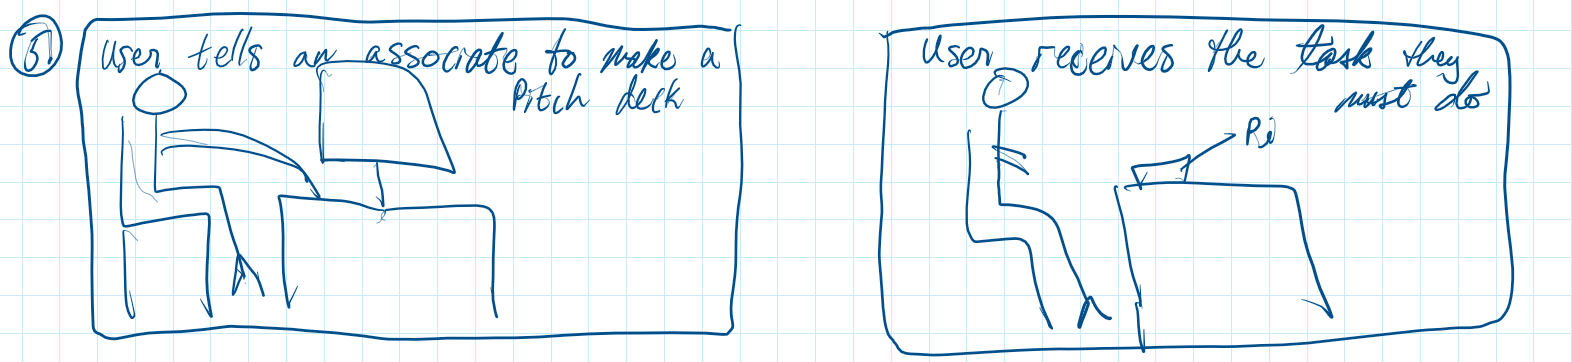 User tells an associate to make a
Pitch deck
User receives the task they
must do